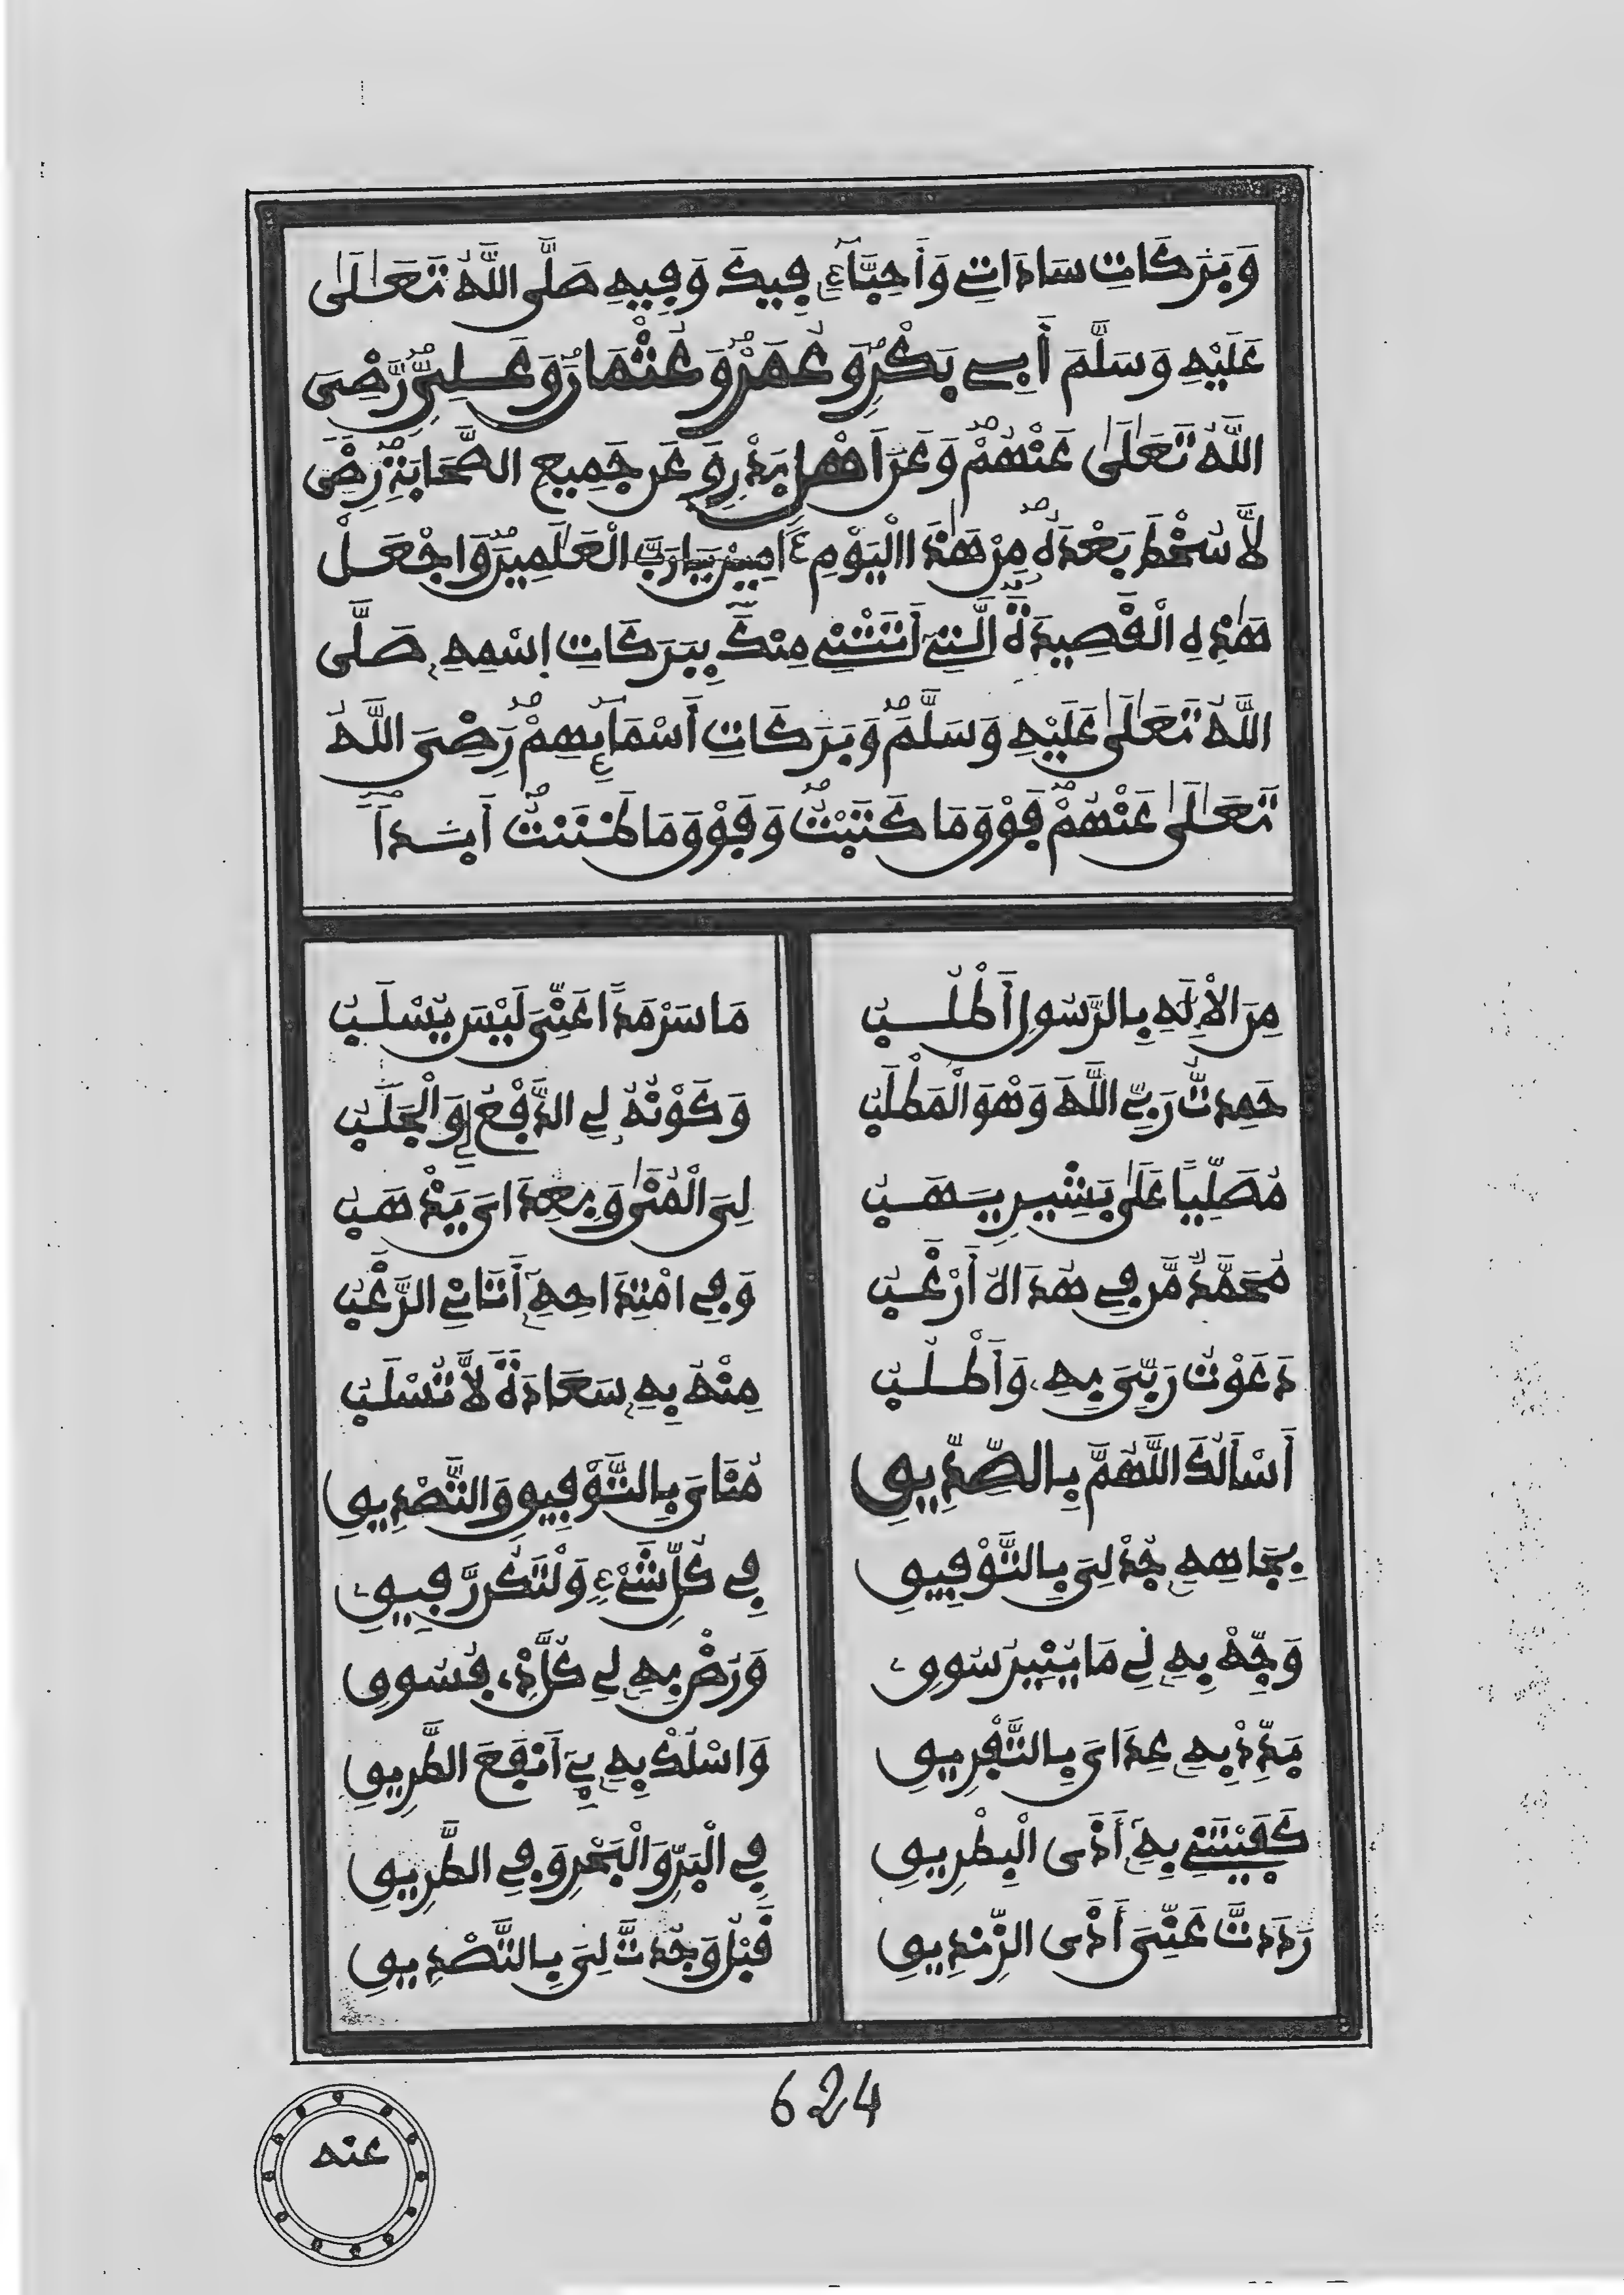 وَبَرَكَاتِ سَادَاتِے وَأَحِبَّآءِے فِيكَ وَفِيهِ صَلَّى اللَّهُ تَعَالَىٰ
عَلَيْهِ وَسَلَّمَ أَبِے بَكْرٍ وَعُمَرَ وَعُثْمَانَ وَعَلِيٍّ رَّضِيَ
اللَّهُ تَعَالَىٰ عَنْهُمْ وَعَنَ اَهْلِ بَدْرٍ وَعَن جَمِيعِ الصَّحَابَةِ رِضًى
لَّا سُخْطَ بَعْدَهُ مِنْ هَٰذَا الْيَوْمِ ءَامِينَ يَا رَبَّ الْعَٰلَمِينَ وَاجْعَلْ
هَٰذِهِ الْقَصِيدَةَ الَّتِے أَتَتْنِے مِنْكَ بِبَرَكَاتِ اِسْمِهِ صَلَّى
اللَّهُ تَعَالَىٰ عَلَيْهِ وَسَلَّمَ وَبَرَكَاتِ أَسْمَآئِهِمْ رَضِيَ اللَّهُ
تَعَالَىٰ عَنْهُمْ فَوْقَ مَا كَتَبْتُ وَفَوْقَ مَا ظَنَنتُ أَبَداً
مِنَ الْإِلَهِ بِالرَّسُولِ أَطْلُبُ مَا سَرْمَداً عَنِّيَ لَيْسَ يُسْلَبُ
حَمِدتُّ رَبِّے اللَّهَ وَهْوَ الْمَطْلَبُ وَكَوْنُهُ لِے الدَّفْعُ لِے وَالْجَلَبُ
مُصَلِّياً عَلَىٰ بَشِيرٍ يَهَبُ لِيَ الْمُنَىٰ وَبِعِدَايَ يَذْهَبُ
مُحَمَّدٌ مَّن فِے هُدَاهُ أَرْغَبُ وَفِے امْتِدَاحِهِ أَتَانِے الرَّغَبُ
دَعَوْتُ رَبِّيَ بِهِ وَأَطْلُبُ مِنْهُ بِهِ سَعَادَةً لَّا تُسْلَبُ
أَسْأَلُكَ اللَّهُمَّ بِالصِّدِّيقِ مُنَايَ بِالتَّوْفِيقِ وَالتَّصْدِيقِ
بِجَاهِهِ جُدْ لِيَ بِالتَّوْفِيقِ فِے كُلِّ شَيْءٍ وَلْتَكُن رَّفِيقِ
وَجِّهْ بِهِ لِے مَا يُنِيرُ سُوقِ وَرَضِّ بِهِ لِے كُلَّ ذِے فُسُوقِ
بَدِّدْ بِهِ عِدَايَ بِالتَّفْرِيقِ وَاسْلُكْ بِهِ بِيَ أَنْفَعَ الطَّرِيقِ
كَفَيْتَنِے بِهِ أَذَى الْبِطْرِيقِ فِے الْبَرِّ وَالْبَحْرِ وَفِے الطَّرِيقِ
رَدَدتَّ عَنِّيَ أَذَى الزِّنْدِيقِ قَبْلُ وَجُدتَّ لِيَ بِالتَّصْدِيقِ
624
عنه